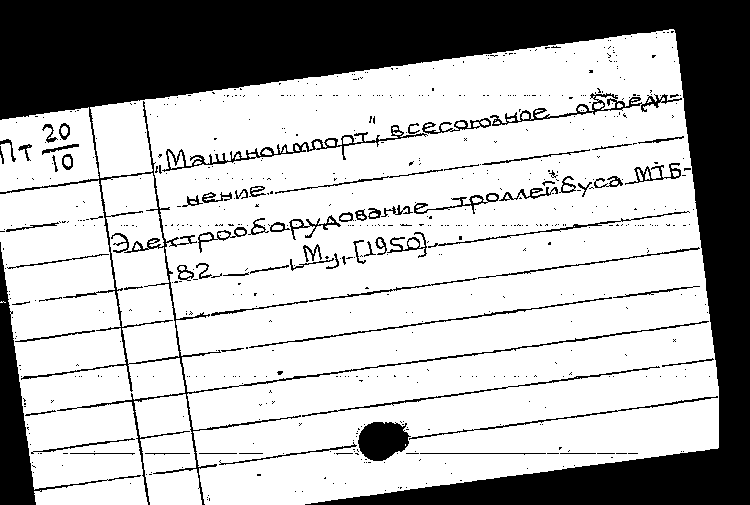 Пт 20/10
„Машиноимпорт", всесоюзное объеди-
нение.
Электрооборудование троллейбуса МТБ-
-82 М., [1950].